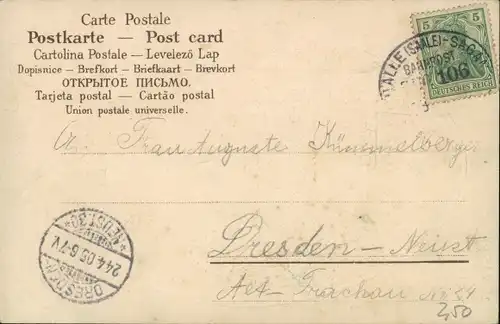 Carte Postale
Postkarte — Post card
Cartolina Postale — Levelező Lap
Dopisnice — Brefkort — Briefkaart — Brevkort
ОТКРЫТОЕ ПИСЬМО.
Tarjeta postal — Cartão postal
Union postale universelle.
5 5
HALLE (SAALE)-SAGAN
BAHNPOST
106
DEUTSCHES REICH
Frau Auguste Kümmelberger
Dresden – Neust
Alt Trachau No 24
2,50
DRESDEN-
NEUST. 30
24.4.05.6-7V.